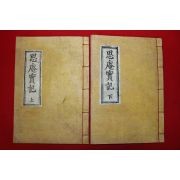 思庵實記 上
思庵實記 下